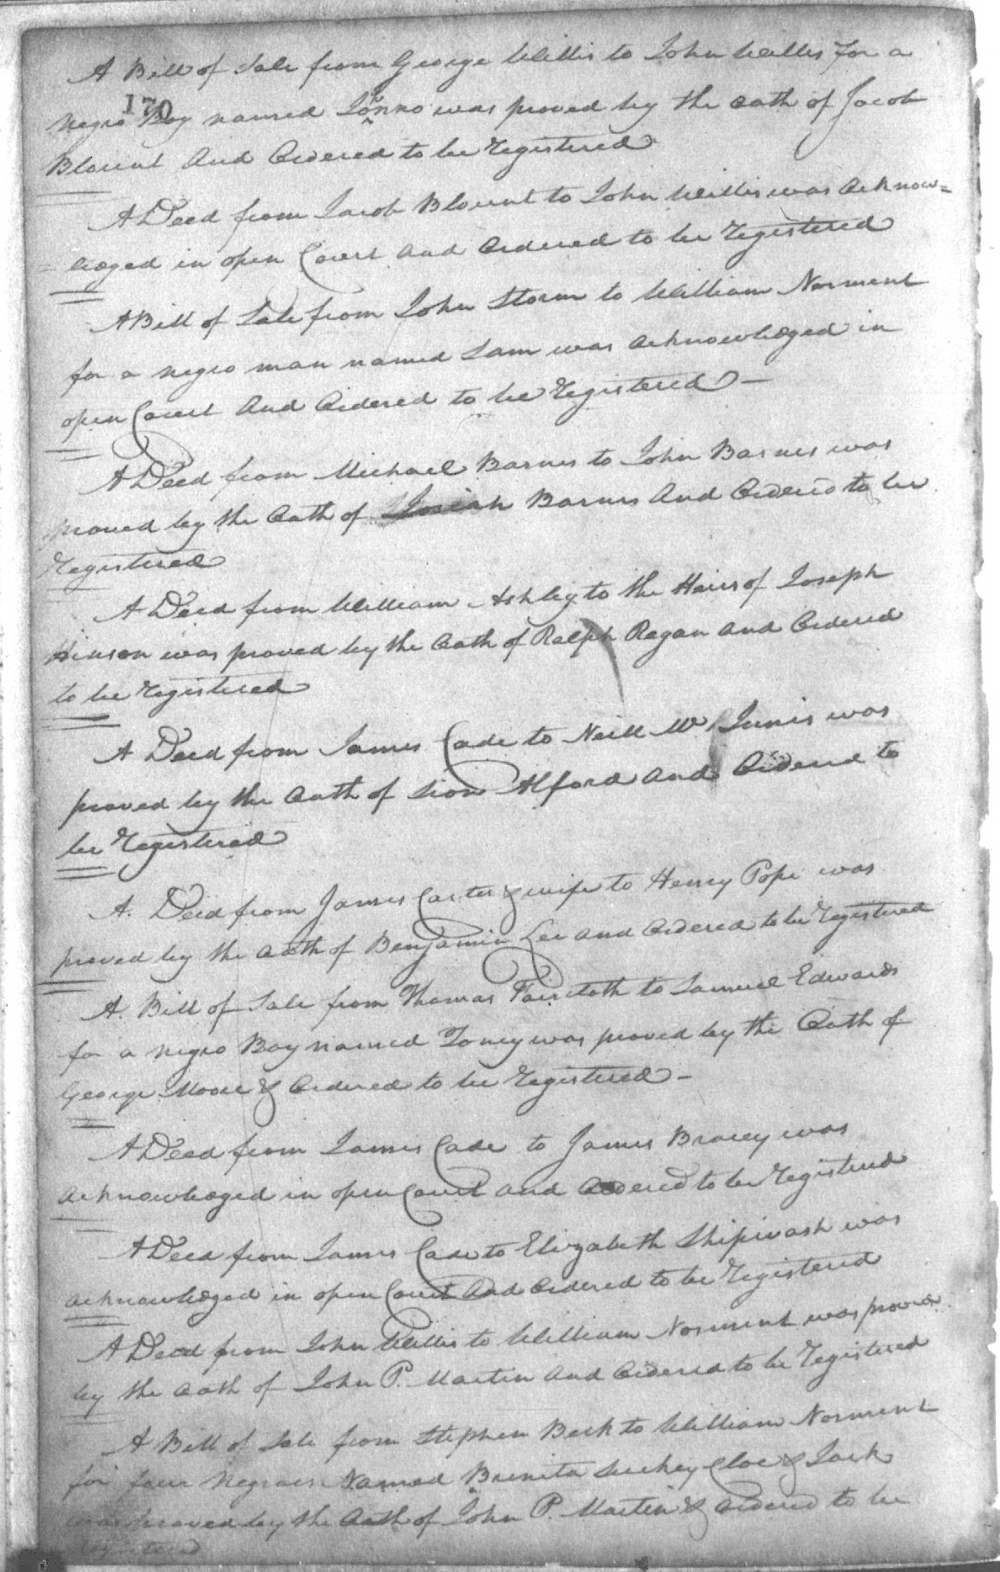 A Bill of Sale from George Willis to John Willis for a
170
negro Boy named was proved by the oath of Jacob
Blount And Ordered to be Registered
A Deed from Jacob Blount to John Willis was Acknow=
=ledged in open Court And Ordered to be Registered
A Bill of Sale from John Storm to William Norment
for a negro man named Sam was Acknowledged in
open Court And Ordered to be Registered —
A Deed from Michael Barnes to John Barnes was
proved by the Oath of Josiah Barnes And Ordered to be
Registered
A Deed from William Ashley to the Heirs of Joseph
Hinson was proved by the Oath of Ralph Regan And Ordered
to be Registered
A Deed from James Cade to Neill Mc Innis was
proved by the Oath of Sion Alford And Ordered to
be Registered
A. Deed from James Carter & wife to Henry Pope was
proved by the Oath of Benjamin Lee And Ordered to be Registered
A. Bill of Sale from Thomas Faircloth to Samuel Edwards
for a negro Boy named Toney was proved by the Oath of
George Moore & Ordered to be Registered —
A Deed from James Cade to James Bracey was
Acknowledged in open Court and Ordered to be Registered
A Deed from James Cade to Elizabeth Shipwash was
acknowledged in open Court And Ordered to be Registered
A Deed from John Willis to William Norment was proved
by the Oath of John P. Martin And Ordered to be Registered
A Bill of Sale from Stephen Beck to William Norment
for four Negroes Named Suckey Cloe & Jack
was proved by the Oath of John P. Martin & Ordered to be
Registered